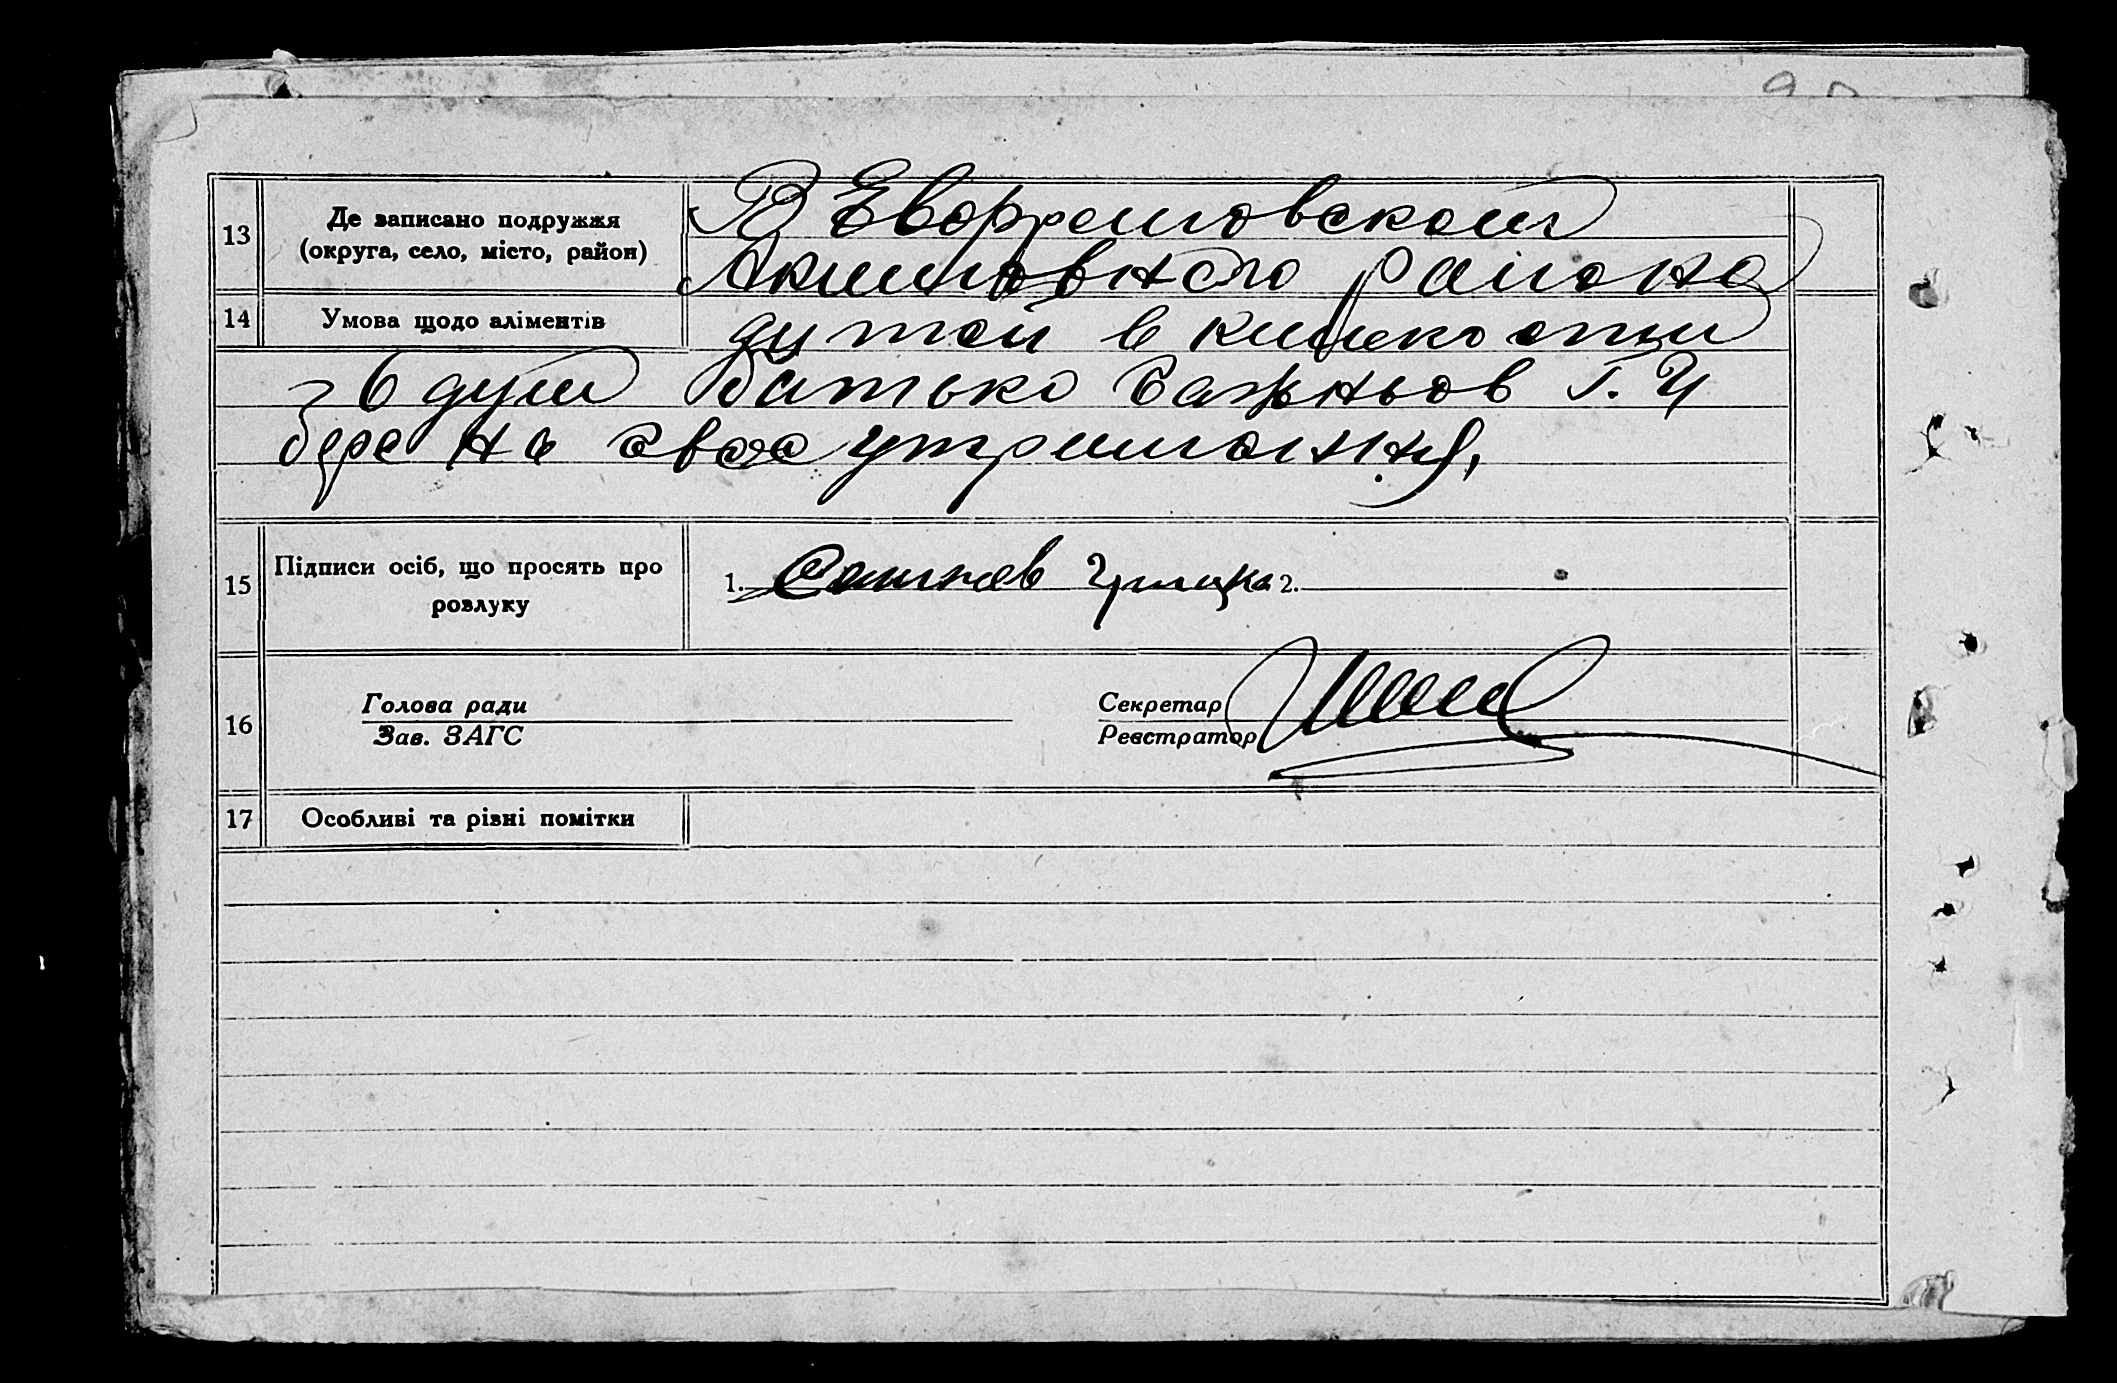 13 Де записано подружжя
(округа, село, місто, район)
В
Акимовского района
14 Умова щодо аліментів
дитей в килькости
з 6 душ батько Г. И
бере на своє утримання,
15 Підписи осіб, що просять про
розлуку
1. 2.
16 Голова ради
Зав. ЗАГС
Секретар
Реєстратор
17 Особливі та різні помітки